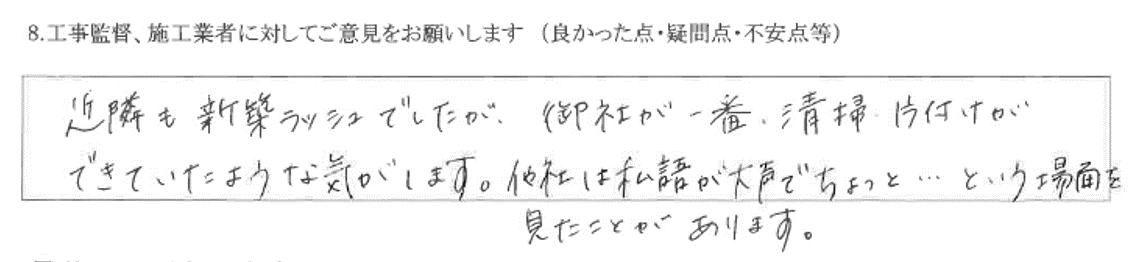 8.工事監督、施工業者に対してご意見をお願いします （良かった点・疑問点・不安点等）
近隣も新築ラッシュでしたが、御社が一番、清掃・片付けが
できていたような気がします。他社は私語が大声でちょっと…という場面を
見たことがあります。